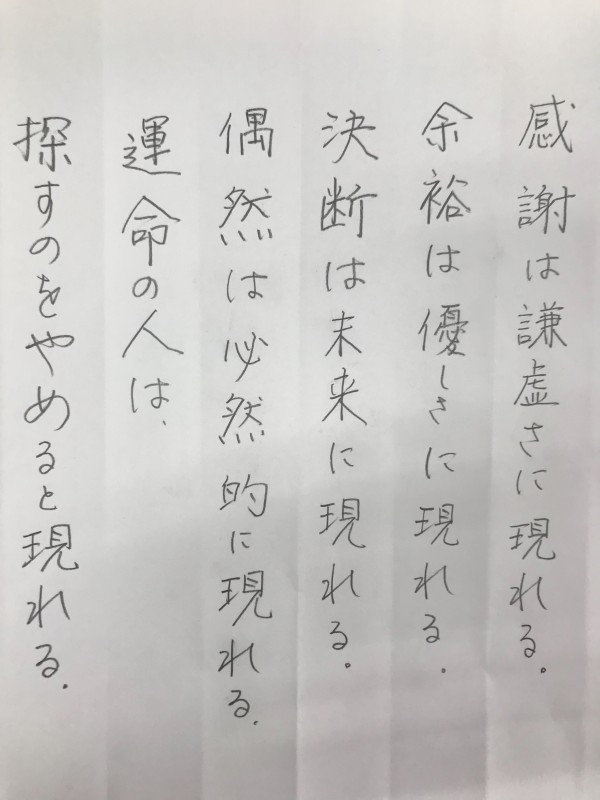 感謝は謙虚さに現れる。
余裕は優しさに現れる.
決断は未来に現れる。
偶然は必然的に現れる.
運命の人は、
探すのをやめると現れる.